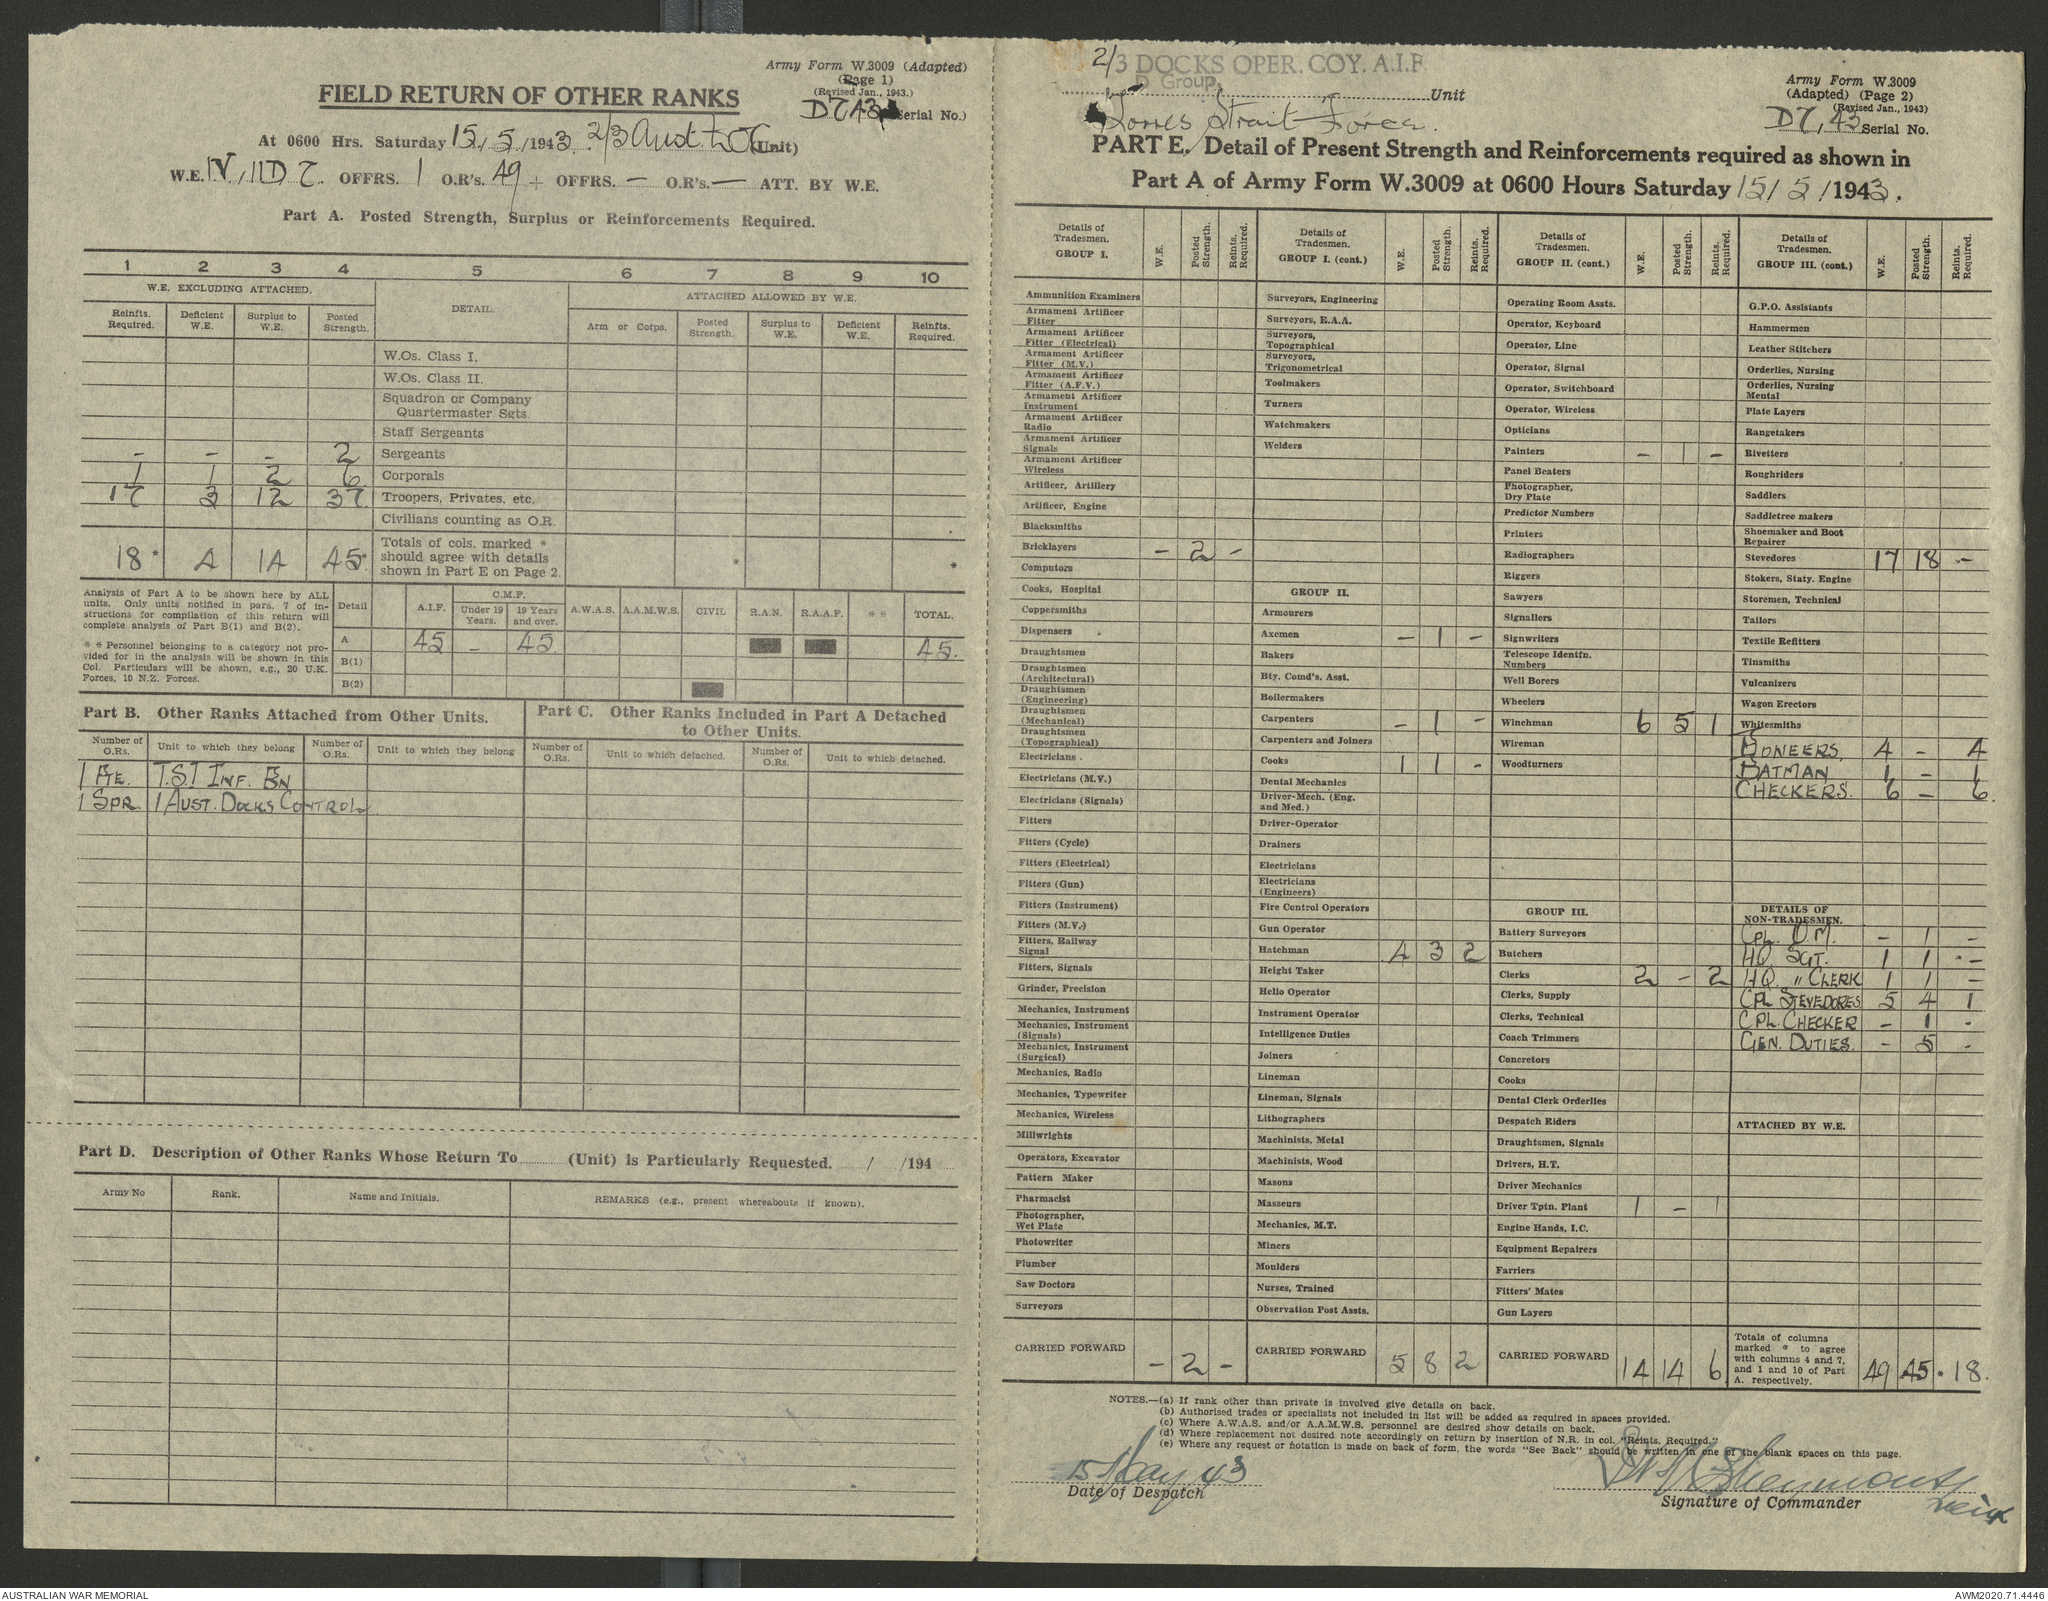 Army Form W.3009 (Adapted)
(Page 1)
(Revised Jan., 1943.)
FIELD RETURN OF OTHER RANKS
D7,43 Serial No.)
At 0600 Hrs. Saturday 15/5/1943. 2/3 Aust (Unit)
W.E. IV, 11D 7. OFFRS. 1 O.R's. 49 + OFFRS. — O.R's. — ATT. BY W.E.
Part A. Posted Strength, Surplus or Reinforcements Required.
1 2 3 4 5 6 7 8 9 10
W.E. EXCLUDING ATTACHED. DETAIL. ATTACHED ALLOWED BY W.E.
Reinfts. Required. Deficient W.E. Surplus to W.E. Posted Strength. Arm or Corps. Posted Strength. Surplus to W.E. Deficient W.E. Reinfts. Required.
W.Os. Class I.
W.Os. Class II.
Squadron or Company
Quartermaster Sgts.
Staff Sergeants
- - - 2 Sergeants
1 1 2 6 Corporals
17 3 12 37 Troopers, Privates, etc.
Civilians counting as O.R.
18* 4 14 45* Totals of cols. marked *
should agree with details
shown in Part E on Page 2. * *
Analysis of Part A to be shown here by ALL
units. Only units notified in para. 7 of in-
structions for compilation of this return will
complete analysis of Part B(1) and B(2).
* * Personnel belonging to a category not pro-
vided for in the analysis will be shown in this
Col. Particulars will be shown, e.g., 20 U.K.
Forces, 10 N.Z. Forces.
Detail A.I.F. C.M.F. Under 19 Years. 19 Years and over. A.W.A.S. A.A.M.W.S. CIVIL R.A.N. R.A.A.F. * * TOTAL.
A 45 - 45 45.
B(1)
B(2)
Part B. Other Ranks Attached from Other Units.
Number of O.Rs. Unit to which they belong Number of O.Rs. Unit to which they belong
1 PTE. T.S.I INF. BN
1 SPR. 1 AUST. DOCKS CONTROL
Part C. Other Ranks Included in Part A Detached
to Other Units.
Number of O.Rs. Unit to which detached. Number of O.Rs. Unit to which detached.
Part D. Description of Other Ranks Whose Return To (Unit) is Particularly Requested. / /194
Army No Rank. Name and Initials. REMARKS (e.g., present whereabouts if known).
2/3 DOCKS OPER. COY. A.I.F.
D Group, Unit
Torres Strait Force.
Army Form W.3009
(Adapted) (Page 2)
(Revised Jan., 1943)
D7, 43 Serial No.
PART E. Detail of Present Strength and Reinforcements required as shown in
Part A of Army Form W.3009 at 0600 Hours Saturday 15/5/1943.
Details of Tradesmen. GROUP I. W.E. Posted Strength. Reints. Required.
Ammunition Examiners
Armament Artificer Fitter
Armament Artificer Fitter (Electrical)
Armament Artificer Fitter (M.V.)
Armament Artificer Fitter (A.F.V.)
Armament Artificer Instrument
Armament Artificer Radio
Armament Artificer Signals
Armament Artificer Wireless
Artificer, Artillery
Artificer, Engine
Blacksmiths
Bricklayers - 2 -
Computors
Cooks, Hospital
Coppersmiths
Dispensers
Draughtsmen
Draughtsmen (Architectural)
Draughtsmen (Engineering)
Draughtsmen (Mechanical)
Draughtsmen (Topographical)
Electricians
Electricians (M.V.)
Electricians (Signals)
Fitters
Fitters (Cycle)
Fitters (Electrical)
Fitters (Gun)
Fitters (Instrument)
Fitters (M.V.)
Fitters, Railway Signal
Fitters, Signals
Grinder, Precision
Mechanics, Instrument
Mechanics, Instrument (Signals)
Mechanics, Instrument (Surgical)
Mechanics, Radio
Mechanics, Typewriter
Mechanics, Wireless
Millwrights
Operators, Excavator
Pattern Maker
Pharmacist
Photographer, Wet Plate
Photowriter
Plumber
Saw Doctors
Surveyors
CARRIED FORWARD - 2 -
Details of Tradesmen. GROUP I. (cont.) W.E. Posted Strength. Reints. Required.
Surveyors, Engineering
Surveyors, R.A.A.
Surveyors, Topographical
Surveyors, Trigonometrical
Toolmakers
Turners
Watchmakers
Welders
GROUP II.
Armourers
Axemen - 1 -
Bakers
Bty. Comd's. Asst.
Boilermakers
Carpenters - 1 -
Carpenters and Joiners
Cooks 1 1 -
Dental Mechanics
Driver-Mech. (Eng. and Med.)
Driver-Operator
Drainers
Electricians
Electricians (Engineers)
Fire Control Operators
Gun Operator
Hatchman 4 3 2
Height Taker
Helio Operator
Instrument Operator
Intelligence Duties
Joiners
Lineman
Lineman, Signals
Lithographers
Machinists, Metal
Machinists, Wood
Masons
Masseurs
Mechanics, M.T.
Miners
Moulders
Nurses, Trained
Observation Post Assts.
CARRIED FORWARD 5 8 2
Details of Tradesmen. GROUP II. (cont.) W.E. Posted Strength. Reints. Required.
Operating Room Assts.
Operator, Keyboard
Operator, Line
Operator, Signal
Operator, Switchboard
Operator, Wireless
Opticians
Painters - 1 -
Panel Beaters
Photographer, Dry Plate
Predictor Numbers
Printers
Radiographers
Riggers
Sawyers
Signallers
Signwriters
Telescope Identfn. Numbers
Well Borers
Wheelers
Winchman 6 5 1
Wireman
Woodturners
GROUP III.
Battery Surveyors
Butchers
Clerks 2 - 2
Clerks, Supply
Clerks, Technical
Coach Trimmers
Concretors
Cooks
Dental Clerk Orderlies
Despatch Riders
Draughtsmen, Signals
Drivers, H.T.
Driver Mechanics
Driver Tptn. Plant 1 - 1
Engine Hands, I.C.
Equipment Repairers
Farriers
Fitters' Mates
Gun Layers
CARRIED FORWARD 14 14 6
Details of Tradesmen. GROUP III. (cont.) W.E. Posted Strength. Reints. Required.
G.P.O. Assistants
Hammermen
Leather Stitchers
Orderlies, Nursing
Orderlies, Nursing Mental
Plate Layers
Rangetakers
Rivetters
Roughriders
Saddlers
Saddletree makers
Shoemaker and Boot Repairer
Stevedores 17 18 -
Stokers, Staty. Engine
Storemen, Technical
Tailors
Textile Refitters
Tinsmiths
Vulcanizers
Wagon Erectors
Whitesmiths
PIONEERS. 4 - 4
BATMAN 1 - 1
CHECKERS. 6 - 6.
DETAILS OF NON-TRADESMEN.
CPL. Q.M. - 1 -
HQ SGT. 1 1 -
HQ " CLERK 1 1 -
CPL STEVEDORES 5 4 1
CPL. CHECKER - 1 -
GEN. DUTIES. - 5 -
ATTACHED BY W.E.
Totals of columns
marked * to agree
with columns 4 and 7,
and 1 and 10 of Part
A. respectively. 49 45 * 18.
NOTES.—(a) If rank other than private is involved give details on back.
(b) Authorised trades or specialists not included in list will be added as required in spaces provided.
(c) Where A.W.A.S. and/or A.A.M.W.S. personnel are desired show details on back.
(d) Where replacement not desired note accordingly on return by insertion of N.R. in col. "Reints. Required."
(e) Where any request or notation is made on back of form, the words "See Back" should be written in one of the blank spaces on this page.
15 May 43
Date of Despatch
Signature of Commander
AUSTRALIAN WAR MEMORIAL
AWM2020.71.4446